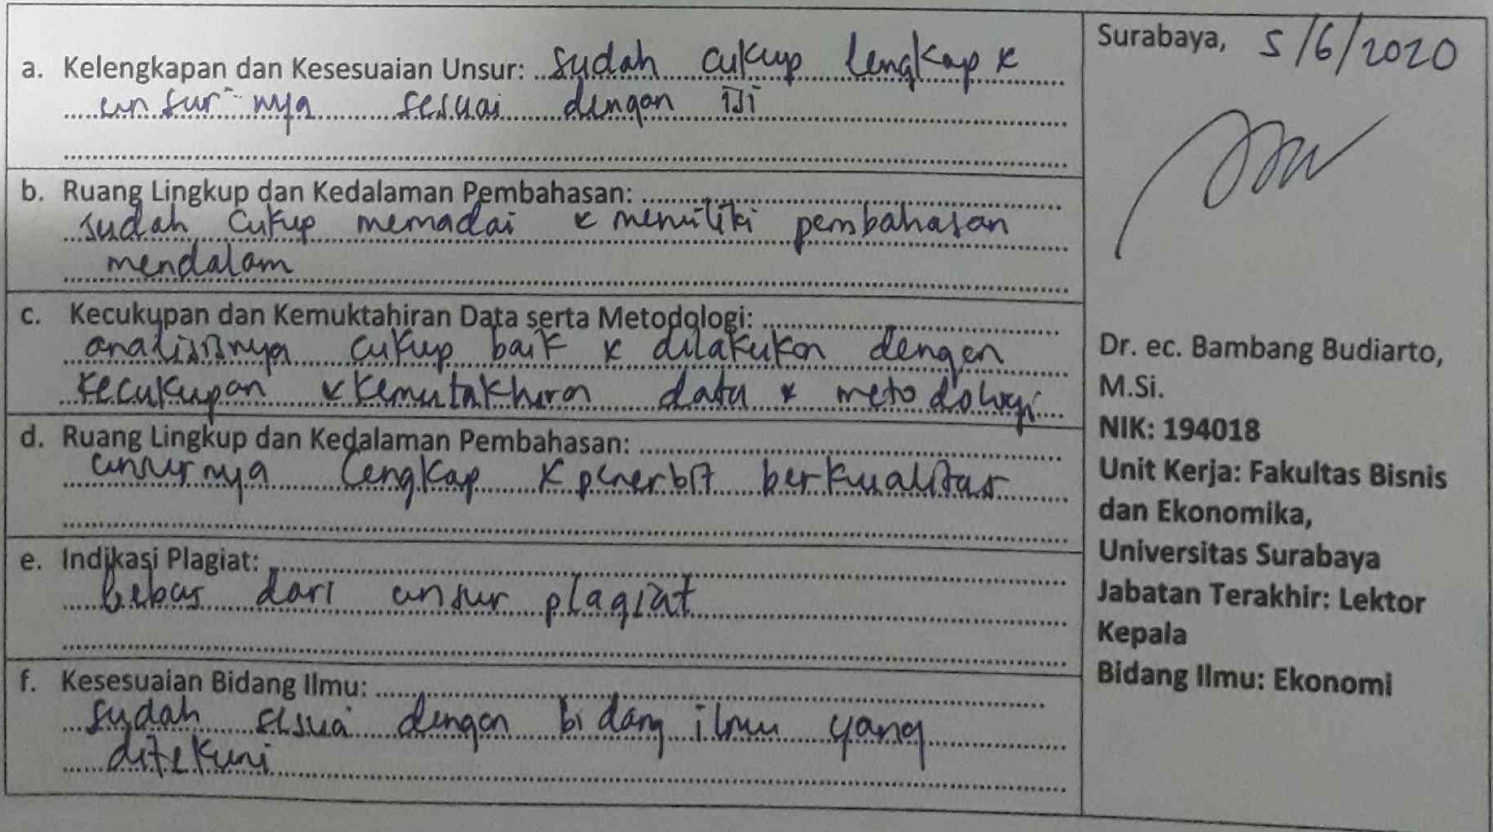 a. Kelengkapan dan Kesesuaian Unsur: sudah cukup lengkap &
unsurnya sesuai dengan isi
b. Ruang Lingkup dan Kedalaman Pembahasan:
sudah cukup memadai & memiliki pembahasan
mendalam
c. Kecukupan dan Kemuktahiran Data serta Metodologi:
analisisnya cukup baik & dilakukan dengan
kecukupan & kemutakhiran data & metodologi
d. Ruang Lingkup dan Kedalaman Pembahasan:
unsurnya lengkap & penerbit berkualitas
e. Indikasi Plagiat:
bebas dari unsur plagiat
f. Kesesuaian Bidang Ilmu:
sudah sesuai dengan bidang ilmu yang
ditekuni
Surabaya, 5/6/2020
Dr. ec. Bambang Budiarto,
M.Si.
NIK: 194018
Unit Kerja: Fakultas Bisnis
dan Ekonomika,
Universitas Surabaya
Jabatan Terakhir: Lektor
Kepala
Bidang Ilmu: Ekonomi